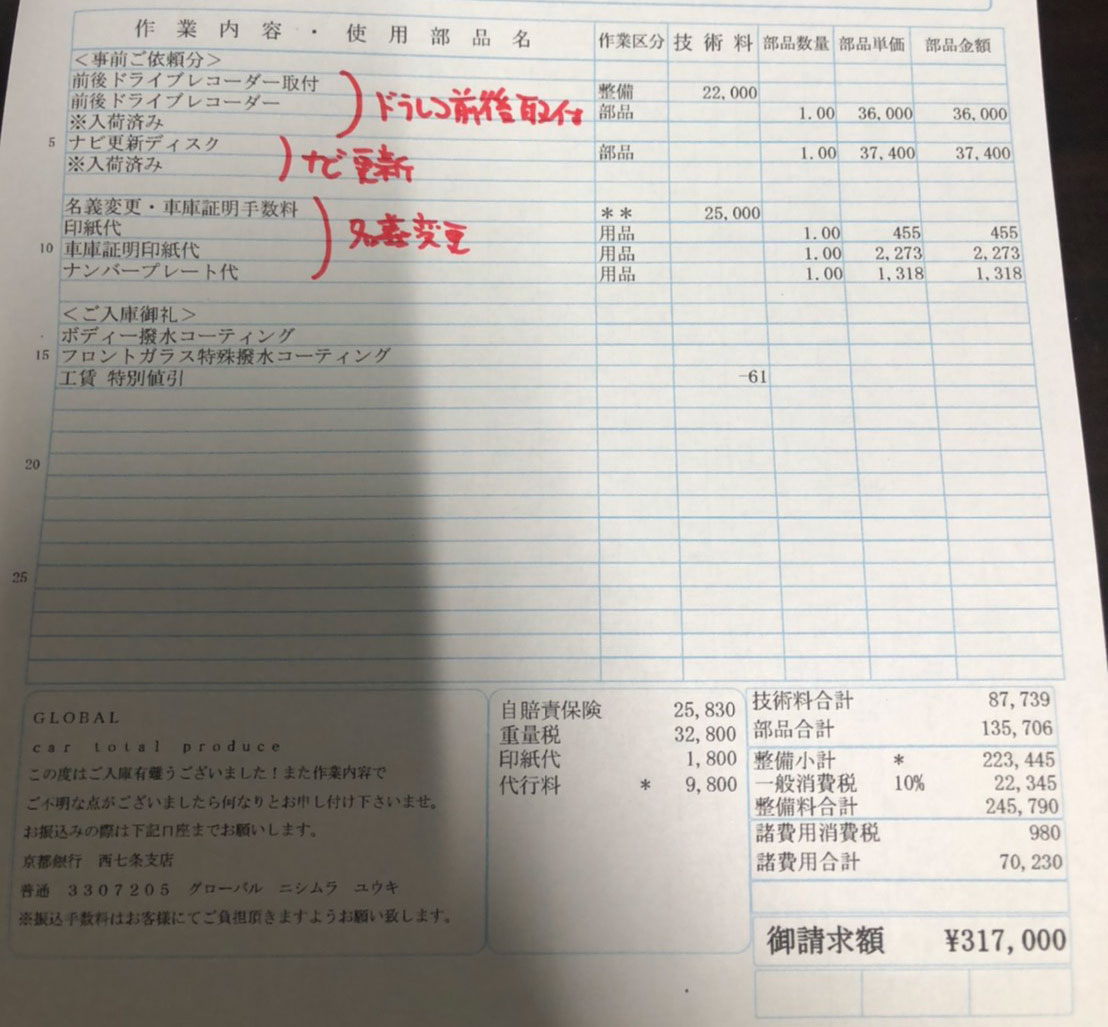 作業内容・使用部品名 作業区分 技術料 部品数量 部品単価 部品金額
＜事前ご依頼分＞
前後ドライブレコーダー取付 整備 22,000
前後ドライブレコーダー 部品 1.00 36,000 36,000
※入荷済み
ドラレコ前後取付
5 ナビ更新ディスク 部品 1.00 37,400 37,400
※入荷済み
ナビ更新
名義変更・車庫証明手数料 ＊＊ 25,000
印紙代 用品 1.00 455 455
10 車庫証明印紙代 用品 1.00 2,273 2,273
ナンバープレート代 用品 1.00 1,318 1,318
名義変更
＜ご入庫御礼＞
ボディー撥水コーティング
15 フロントガラス特殊撥水コーティング
工賃 特別値引 -61
20
25
GLOBAL
car total produce
この度はご入庫有難うございました！また作業内容で
ご不明な点がございましたら何なりとお申し付け下さいませ。
お振込みの際は下記口座までお願いします。
京都銀行 西七条支店
普通 3307205 グローバル ニシムラ ユウキ
※振込手数料はお客様にてご負担頂きますようお願い致します。
自賠責保険 25,830
重量税 32,800
印紙代 1,800
代行料 * 9,800
技術料合計 87,739
部品合計 135,706
整備小計 * 223,445
一般消費税 10% 22,345
整備料合計 245,790
諸費用消費税 980
諸費用合計 70,230
御請求額 ¥317,000